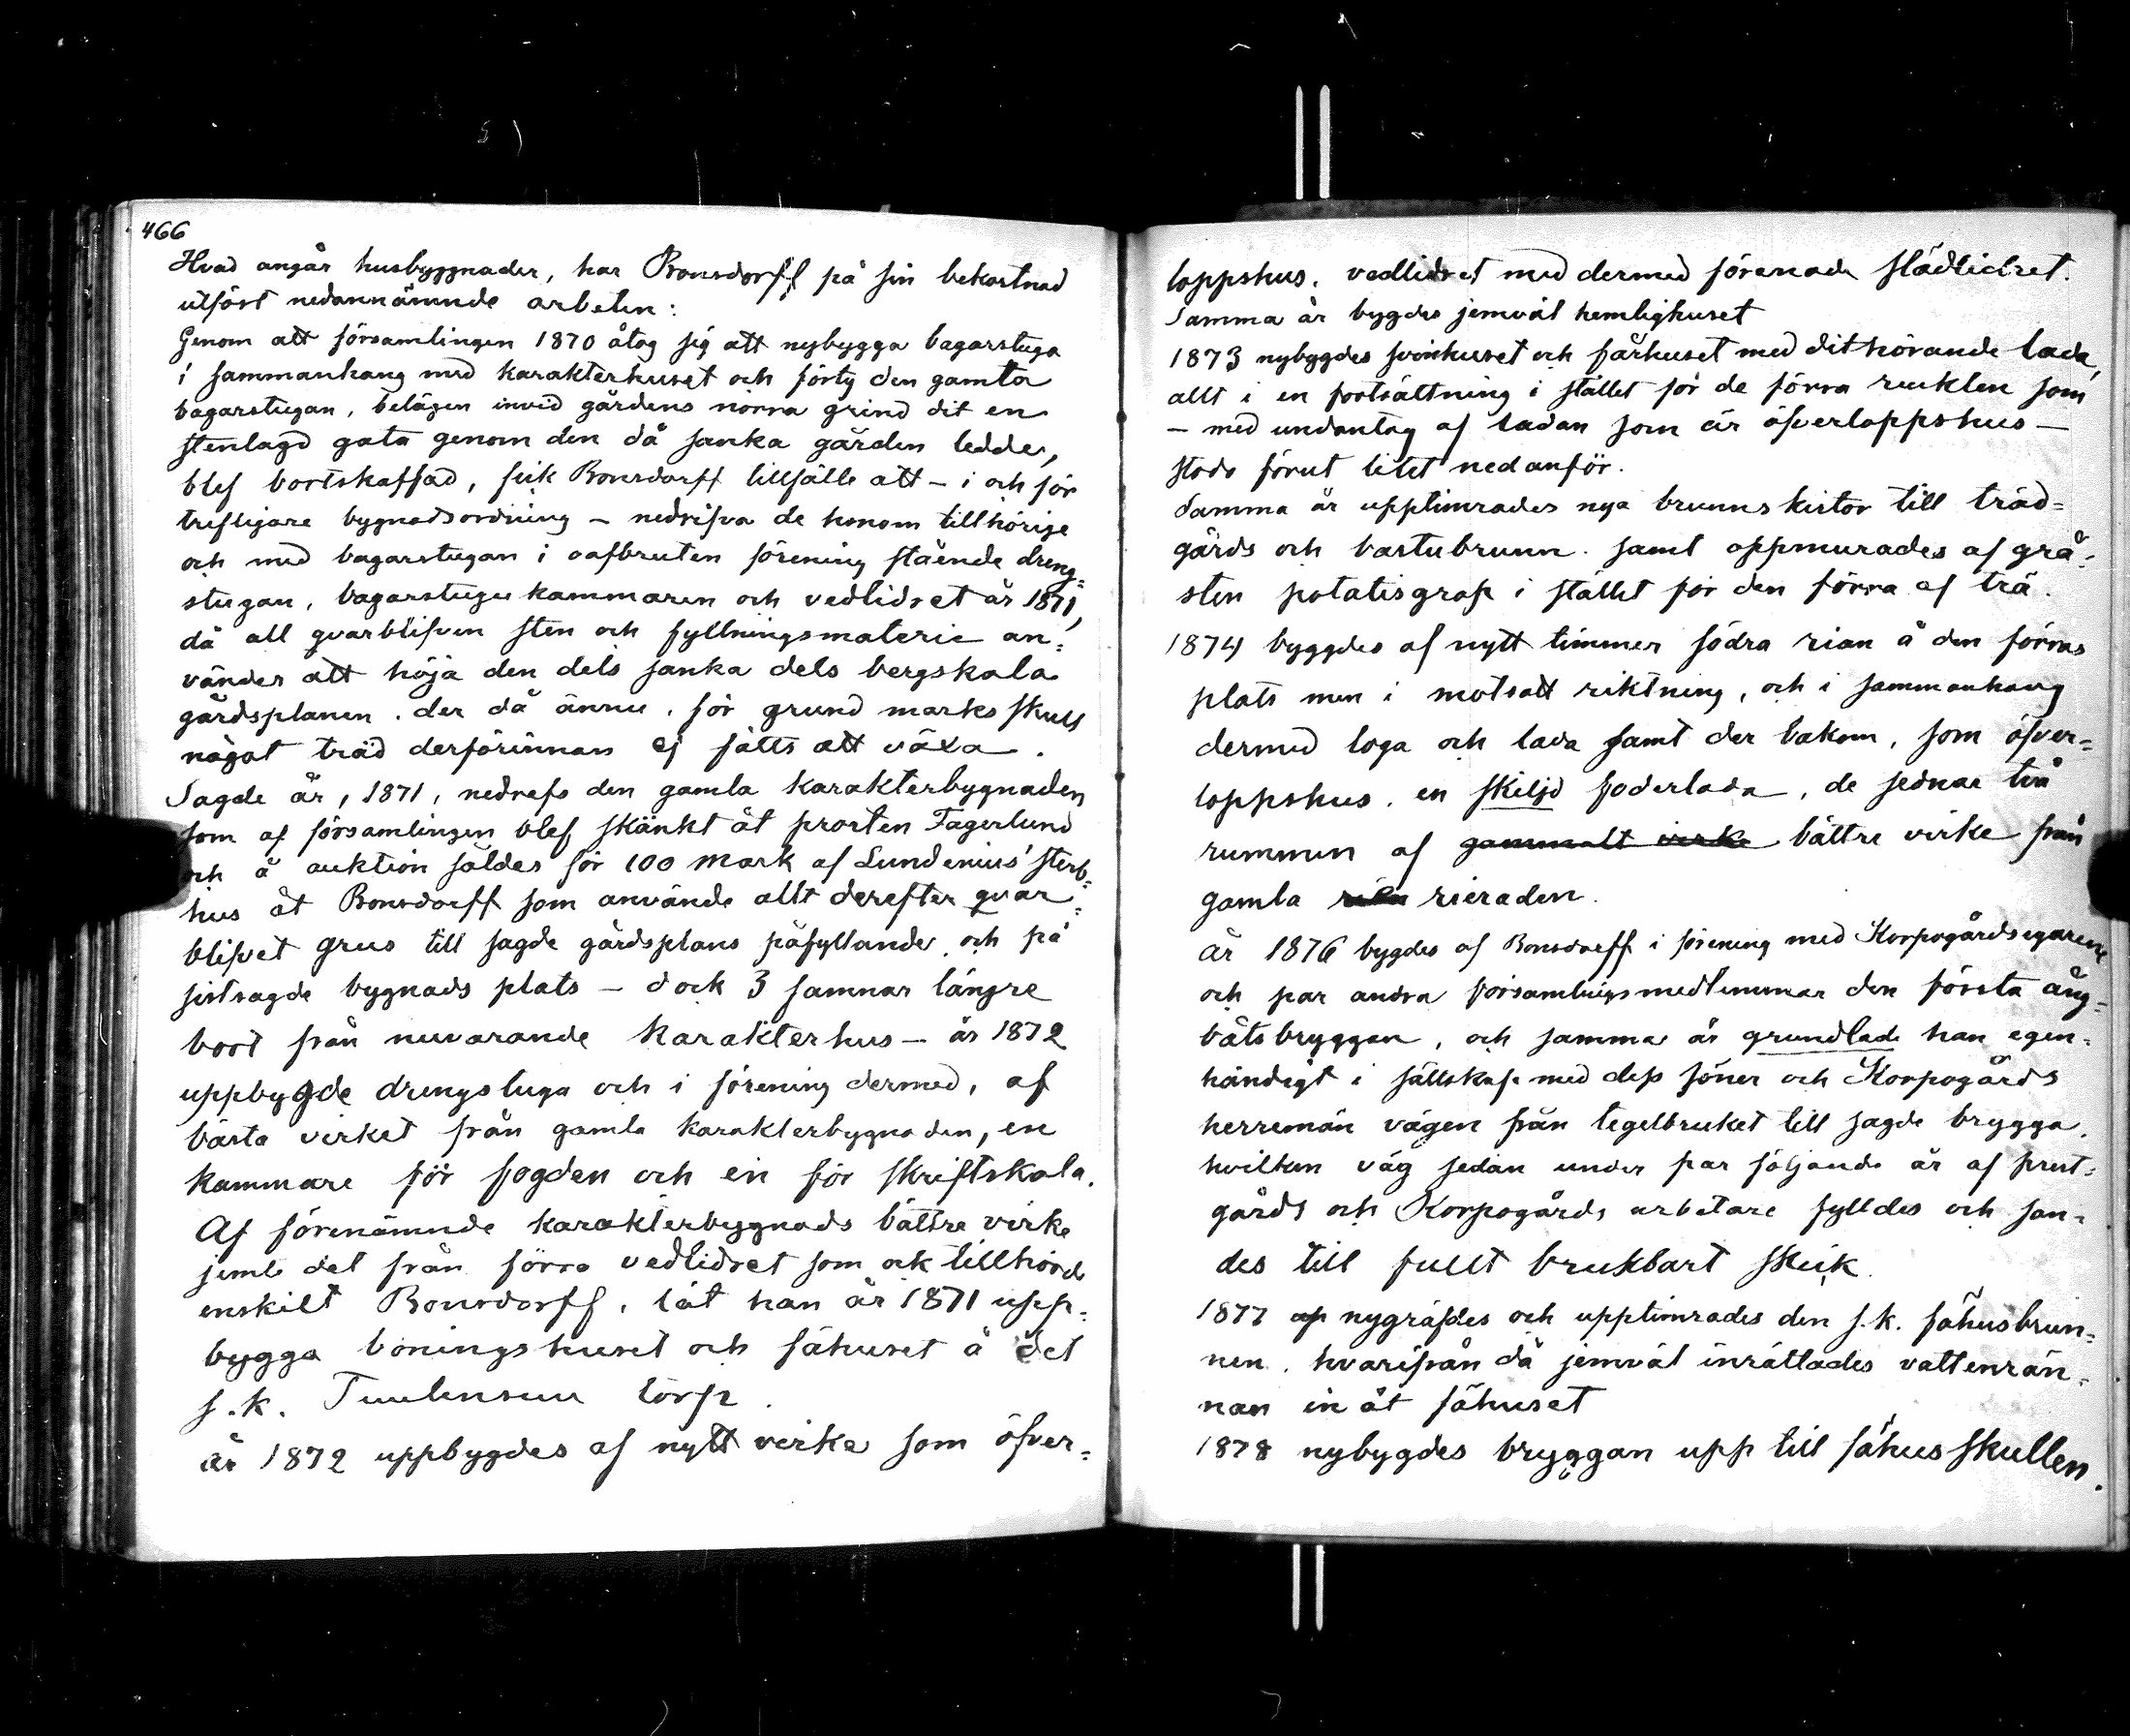 466
Hvad angår husbyggnader, har Bonsdorff på sin bekostnad
utfört nedannämnde arbeten:
Genom att församlingen 1870 åtog sig att nybygga bagarstuga
i sammanhang med karakterhuset och förty den gamla
bagarstugan, belägen invid gårdens norra grind dit en
stenlagd gata genom den då sanka gården ledde,
blef bortskaffad, fick Bonsdorff tillfälle att – i och för
trefligare bygnadsordning – nedrifva de honom tillhörige
och med bagarstugan i oafbruten förening stående dreng=
stugan, bagarstugu kammaren och vedlidret år 1871,
då all qvarblifven sten och fyllningsmaterie an=
vändes att höja den dels sanka dels bergskala
gårdsplanen, der då ännu, för grund marks skull
något träd derförinnan ej sátts att växa.
Sagde år, 1871, nedrefs den gamla karakterbygnaden
som af församlingen blef skänkt åt prosten Fagerlund
och å auktion såldes för 100 mark af Lundenius' sterb=
hus åt Bonsdorff som använde allt derefter qvar=
blifvet grus till sagde gårdsplans påfyllande, och på
sistsagde bygnads plats – dock 3 famnar längre
bort från nuvarande karakterhus – år 1872
uppbygde drengstuga och i förening dermed, af
bästa virket från gamla karakterbygnaden, en
kammare för fogden och en för skriftskola.
Af förenämnde karakterbygnads bättre virke
jemte det från förra vedlidret som ock tillhörde
enskilt Bonsdorff, lät han år 1871 upp=
bygga boningshuset och fähuset å det
s.k. Tuulensuu torp.
År 1872 uppbygdes af nytt virke som öfver=
loppshus, vedlidret med dermed förenade slädlidret.
Samma år bygdes jemväl hemlighuset
1873 nybyggdes svinhuset och fårhuset med dithörande lada,
allt i en fortsättning i stället för de förra rucklen som
– med undantag af ladan som är öfverloppshus –
stodo förut litet nedanför.
Samma år upptimrades nya brunnskistor till träd=
gårds och bastubrunn. samt uppmurades af grå=
sten potatisgrop i stället för den förra af trä.
1874 byggdes af nytt timmer södra rian å den förras
plats men i motsatt riktning, och i sammanhang
dermed loga och lada samt der bakom, som öfver=
loppshus, en skiljd foderlada, de sednae två
rummen af gammalt virke bättre virke från
gamla rieraden.
År 1876 bygdes af Bonsdorff i förening med Korpogårdsegarene
och par andra församlingsmedlemmar den första ång=
båtsbryggan, och samma år grundlade han egen=
händigt i sällskap med dess söner och Korpogårds
herremän vägen från tegelbruket till sagde brygga,
hvilken väg sedan under par följande år af prest=
gårds och Korpogårds arbetare fylldes och san=
des till fullt brukbart skick.
1877 nygräfdes och upptimrades den s.k. fähusbrun=
nen, hvarifrån då jemväl inrättades vattenrän=
nan in åt fähuset
1878 nybygdes bryggan upp till fähus skullen.